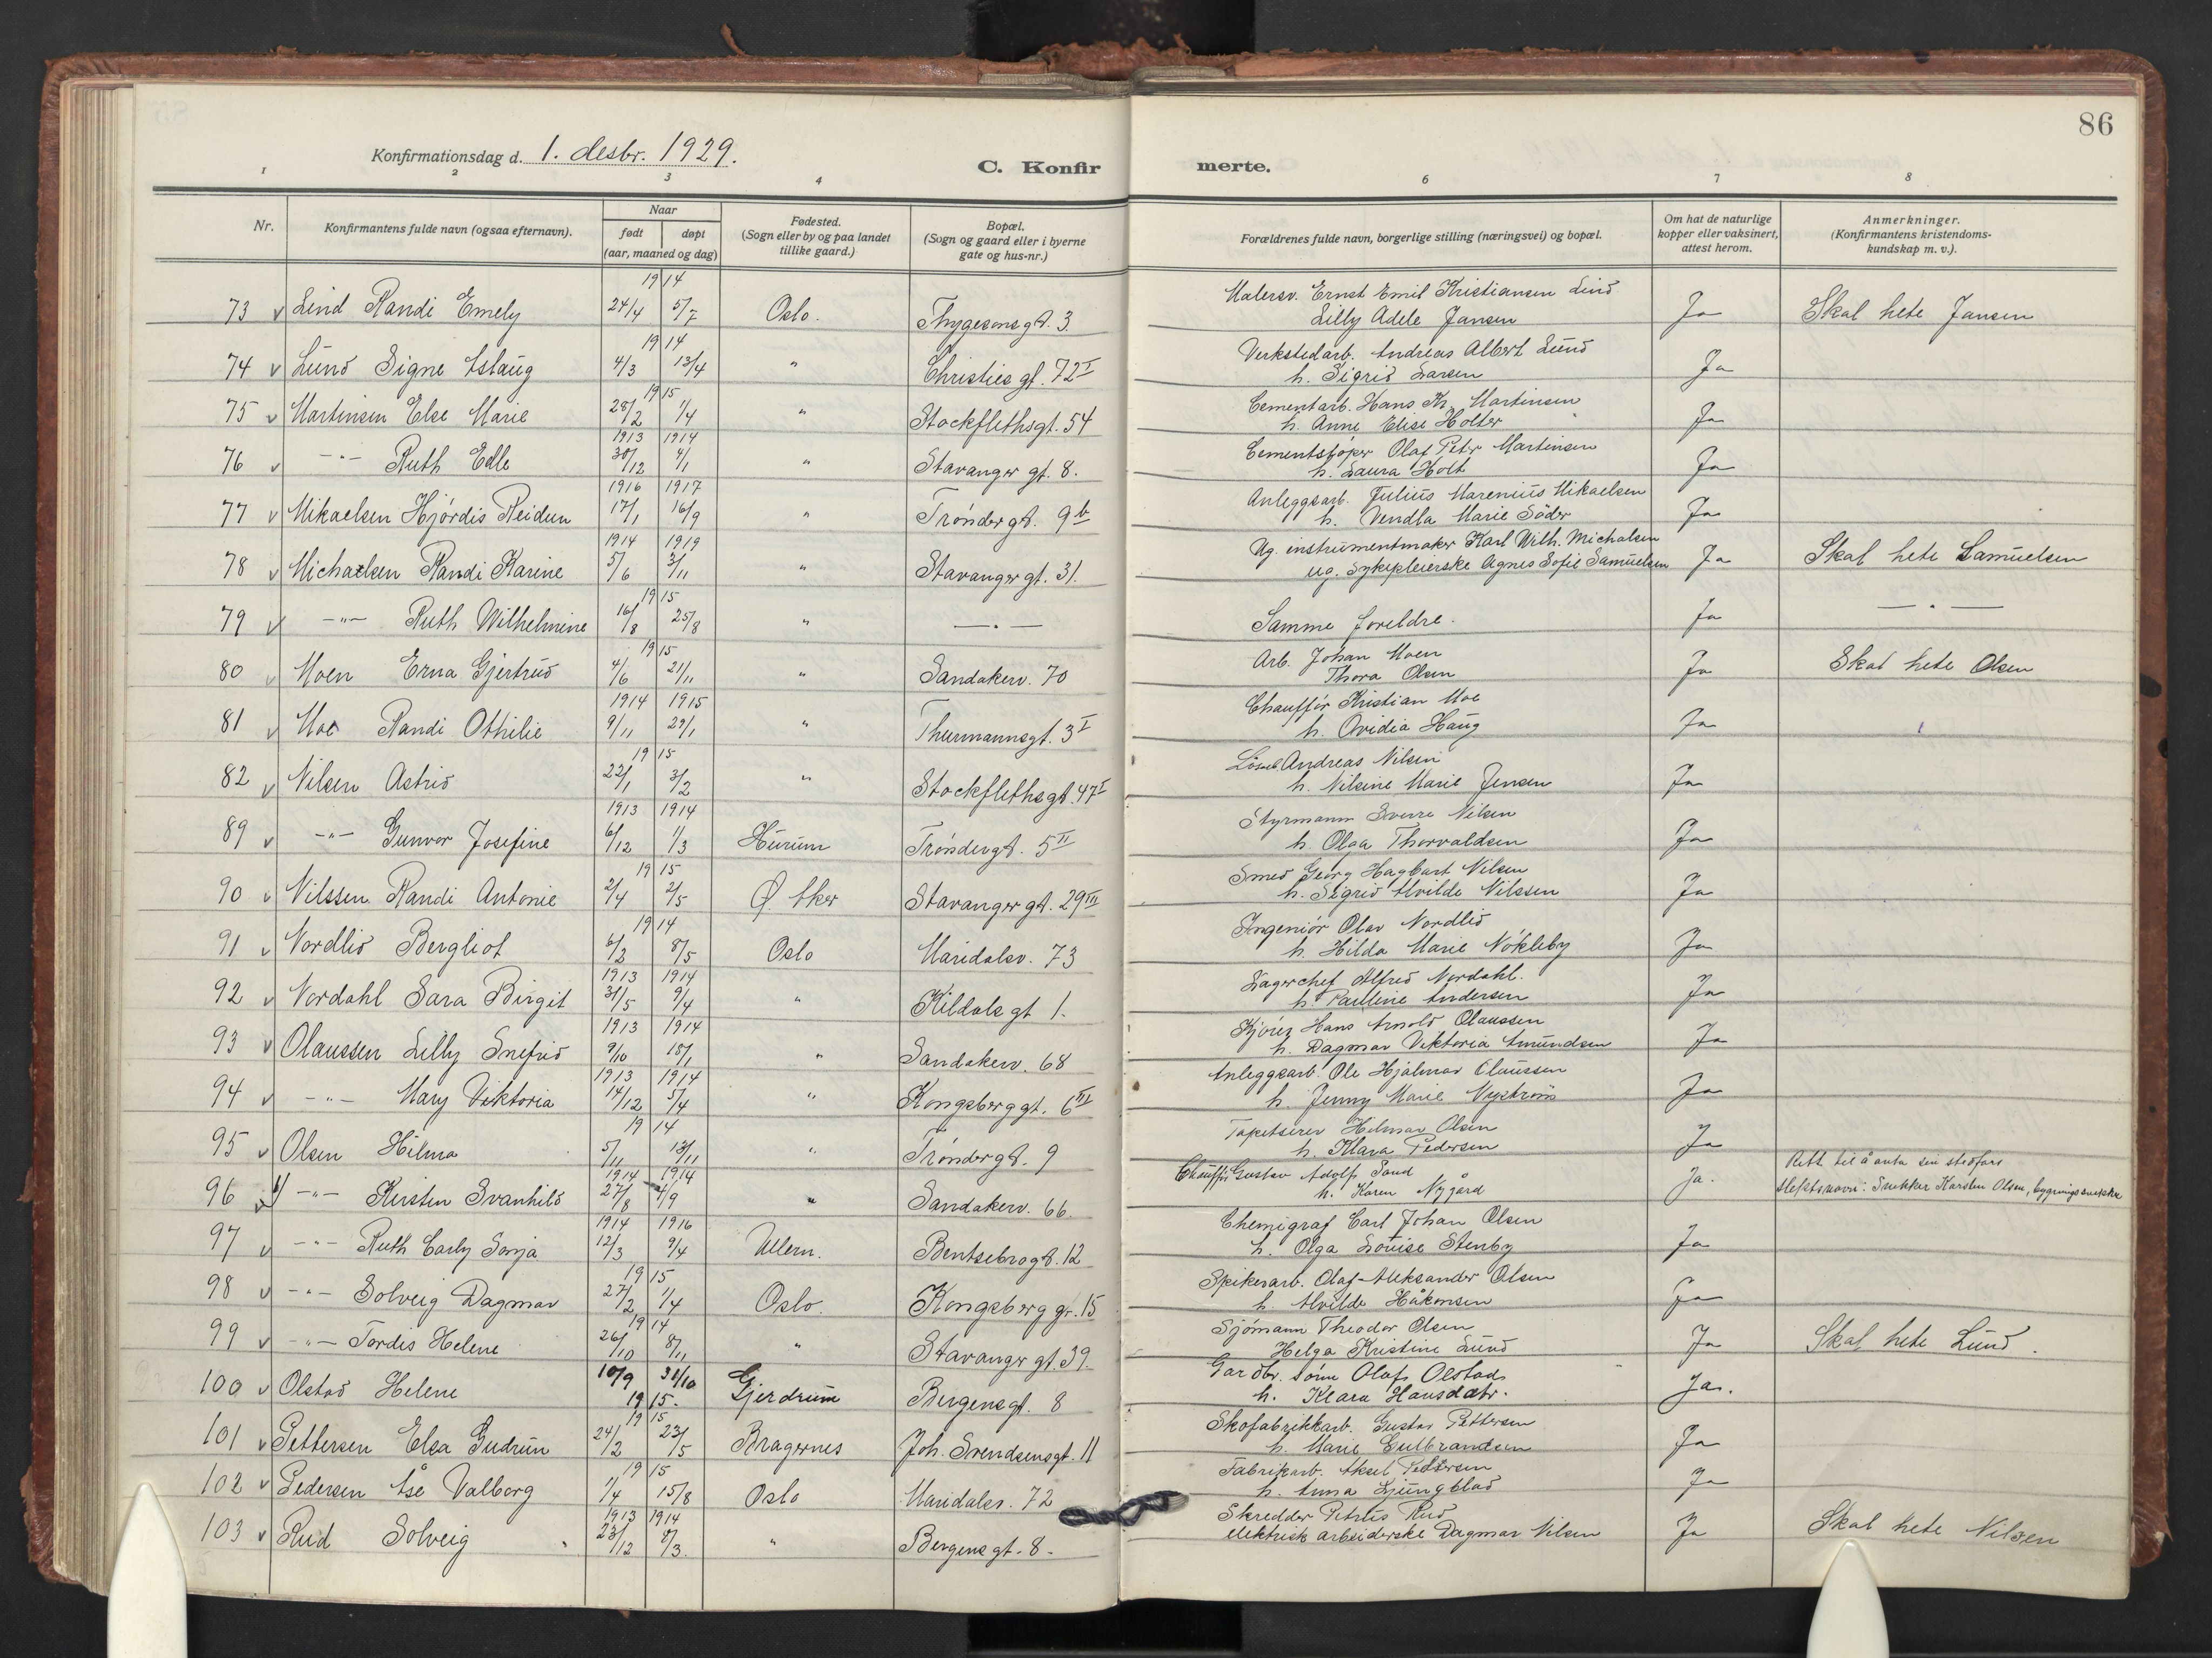 86
Konfirmationsdag d. 1. desbr. 1929.
C. Konfirmerte.
1 2 3 4 6 7 8
Nr.
Konfirmantens fulde navn (ogsaa efternavn).
Naar
født
døpt
(aar, maaned og dag)
Fødested.
(Sogn eller by og paa landet
tillike gaard.)
Bopæl.
(Sogn og gaard eller i byerne
gate og hus-nr.)
Forældrenes fulde navn, borgerlige stilling (næringsvei) og bopæl.
Om hat de naturlige
kopper eller vaksinert,
attest herom.
Anmerkninger.
(Konfirmantens kristendoms-
kundskap m. v.).
1914
73 v Lind Randi Emely 24/4 5/7 Oslo. Thygesons gt. 3 Malersv. Ernst Emil Kristiansen Lind
Lilly Adele Jansen Ja Skal hete Jansen
1914
74 v Lund Signe Aslaug 4/3 13/4 " Christies gt. 72 I Verkstedarb. Andreas Albert Lund
h. Sigrid Larsen Ja
1915
75 v Martinsen Else Marie 28/2 1/4 " Stockflethsgt. 54 Cementarb. Hans Kr. Martinsen
h. Anne Elise Holter Ja
1913 1914
76 v -"- Ruth Edle 30/12 4/1 " Stavanger gt. 8. Cementstøper Olaf Peter Martinsen
h. Laura Holt Ja
1916 1917
77 v Mikaelsen Hjørdis Reidun 17/1 16/9 " Trønder gt. 9 b Anleggsarb. Julius Marenius Mikaelsen
h. Vendla Marie Söder Ja
1914 1919
78 v Michaelsen Randi Karine 5/6 3/11 " Stavanger gt. 31. Ug. instrumentmaker Karl Wilh. Michalsen
ug. Sykepleierske Agnes Sofie Samuelsen Ja Skal hete Samuelsen
1915
79 v -"- Ruth Wilhelmine 16/8 25/8 " — " — Samme foreldre. Ja — " —
1915
80 v Moen Erna Gjertrud 4/6 21/11 " Sandakerv. 70 Arb. Johan Moen
Thora Olsen Ja Skal hete Olsen
1914 1915
81 v Moe Randi Othilie 9/11 29/1 " Thurmannsgt. 3 I Chauffør Kristian Moe
h. Ovidia Haug Ja
1915
82 v Nilsen Astrid 22/1 3/2 " Stockflethsgt. 47 I Andreas Nilsen
h. Nilsine Marie Jensen Ja
1913 1914
89 v -"- Gunvor Josefine 6/12 1/3 Hurum Trøndergt. 5 II Styrmann Sverre Nilsen
h. Olga Thorvaldsen Ja
1915
90 v Nilssen Randi Antonie 2/4 2/5 Ø. Aker Stavanger gt. 29 III Smed Georg Hagbart Nilsen
h. Sigrid Alvilde Nilssen Ja
1914
91 v Nordlid Bergliot 6/2 8/5 Oslo Maridalsv. 73 Ingeniør Olav Nordlid
h. Hilda Marie Nøkleby Ja
1913 1914
92 v Nordahl Sara Birgit 31/5 9/4 " Kildals gt 1. Lagerchef Alfred Nordahl.
h. Pauline Andersen Ja
1913 1914
93 v Olaussen Lilly Snefrid 9/10 18/1 " Sandakerv. 68 Kjører Hans Arnold Olaussen
h. Dagmar Viktoria Amundsen Ja
1913 1914
94 v -"- Mary Viktoria 14/12 5/4 " Kongsberggt. 6 III Anleggsarb. Ole Hjalmar Olaussen
h. Jenny Marie Nystrøm Ja
1914
95 v Olsen Hilma 5/11 13/11 " Trøndergt. 9 Tapetserer Hilmar Olsen
h. Klara Pedersen Ja
1914 1914
96 v -"- Kirsten Svanhild 27/8 4/9 " Sandakerv. 66. Chauffør Gustav Adolf Sand
h. Karen Nygård Ja. Rett til å anta sin stedfars
slektsnavn: Snekker Karsten Olsen, bygningssnekker
1914 1916
97 v -"- Ruth Carly Sonja 12/3 9/4 Ullern. Bentsebrogt. 12 Chemigraf Carl Johan Olsen
h. Olga Lovise Stenby Ja
1915
98 v -"- Solveig Dagmar 27/2 1/4 Oslo. Kongsberg gt. 15 Spikerarb. Olaf Aleksander Olsen
h. Alvilde Håkonsen Ja
1914
99 v -"- Tordis Helene 26/10 8/11 " Stavanger gt. 39 Sjømann Theodor Olsen
Helga Kristine Lund Ja Skal hete Lund.
100 v Olstad Helene 10/9 31/10 Gjerdrum Bergensgt. 8 Gardbr. sønn Olaf Olstad
1915. h. Klara Hansdatr. Ja.
1915
101 v Pettersen Elsa Gudrun 24/2 23/5 Bragernes Joh. Svendsensgt. 11 Skofabrikkarb. Gustav Pettersen
h. Marie Gulbrandsen Ja
1915
102 v Pedersen Åse Valborg 1/4 15/8 Oslo Maridalsv. 72 Fabrikarb. Aksel Pedersen
h. Anna Ljungblad Ja
1913 1914
103 v Rud Solveig 23/12 8/3. " Bergensgt. 8. Skredder Petrus Rud
elektrisk arbeiderske Dagmar Nilsen Ja Skal hete Nilsen